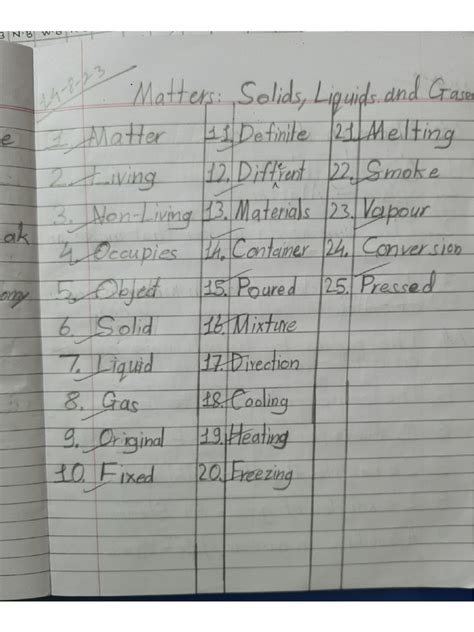 N·B W·B
14-8-23
Matters: Solids, Liquids and Gases
1. Matter
2. Living
3. Non-Living
4. Occupies
5. Object
6. Solid
7. Liquid
8. Gas
9. Original
10. Fixed
11. Definite
12. Diffrent
13. Materials
14. Container
15. Poured
16. Mixture
17. Direction
18. Cooling
19. Heating
20. Freezing
21. Melting
22. Smoke
23. Vapour
24. Conversion
25. Pressed